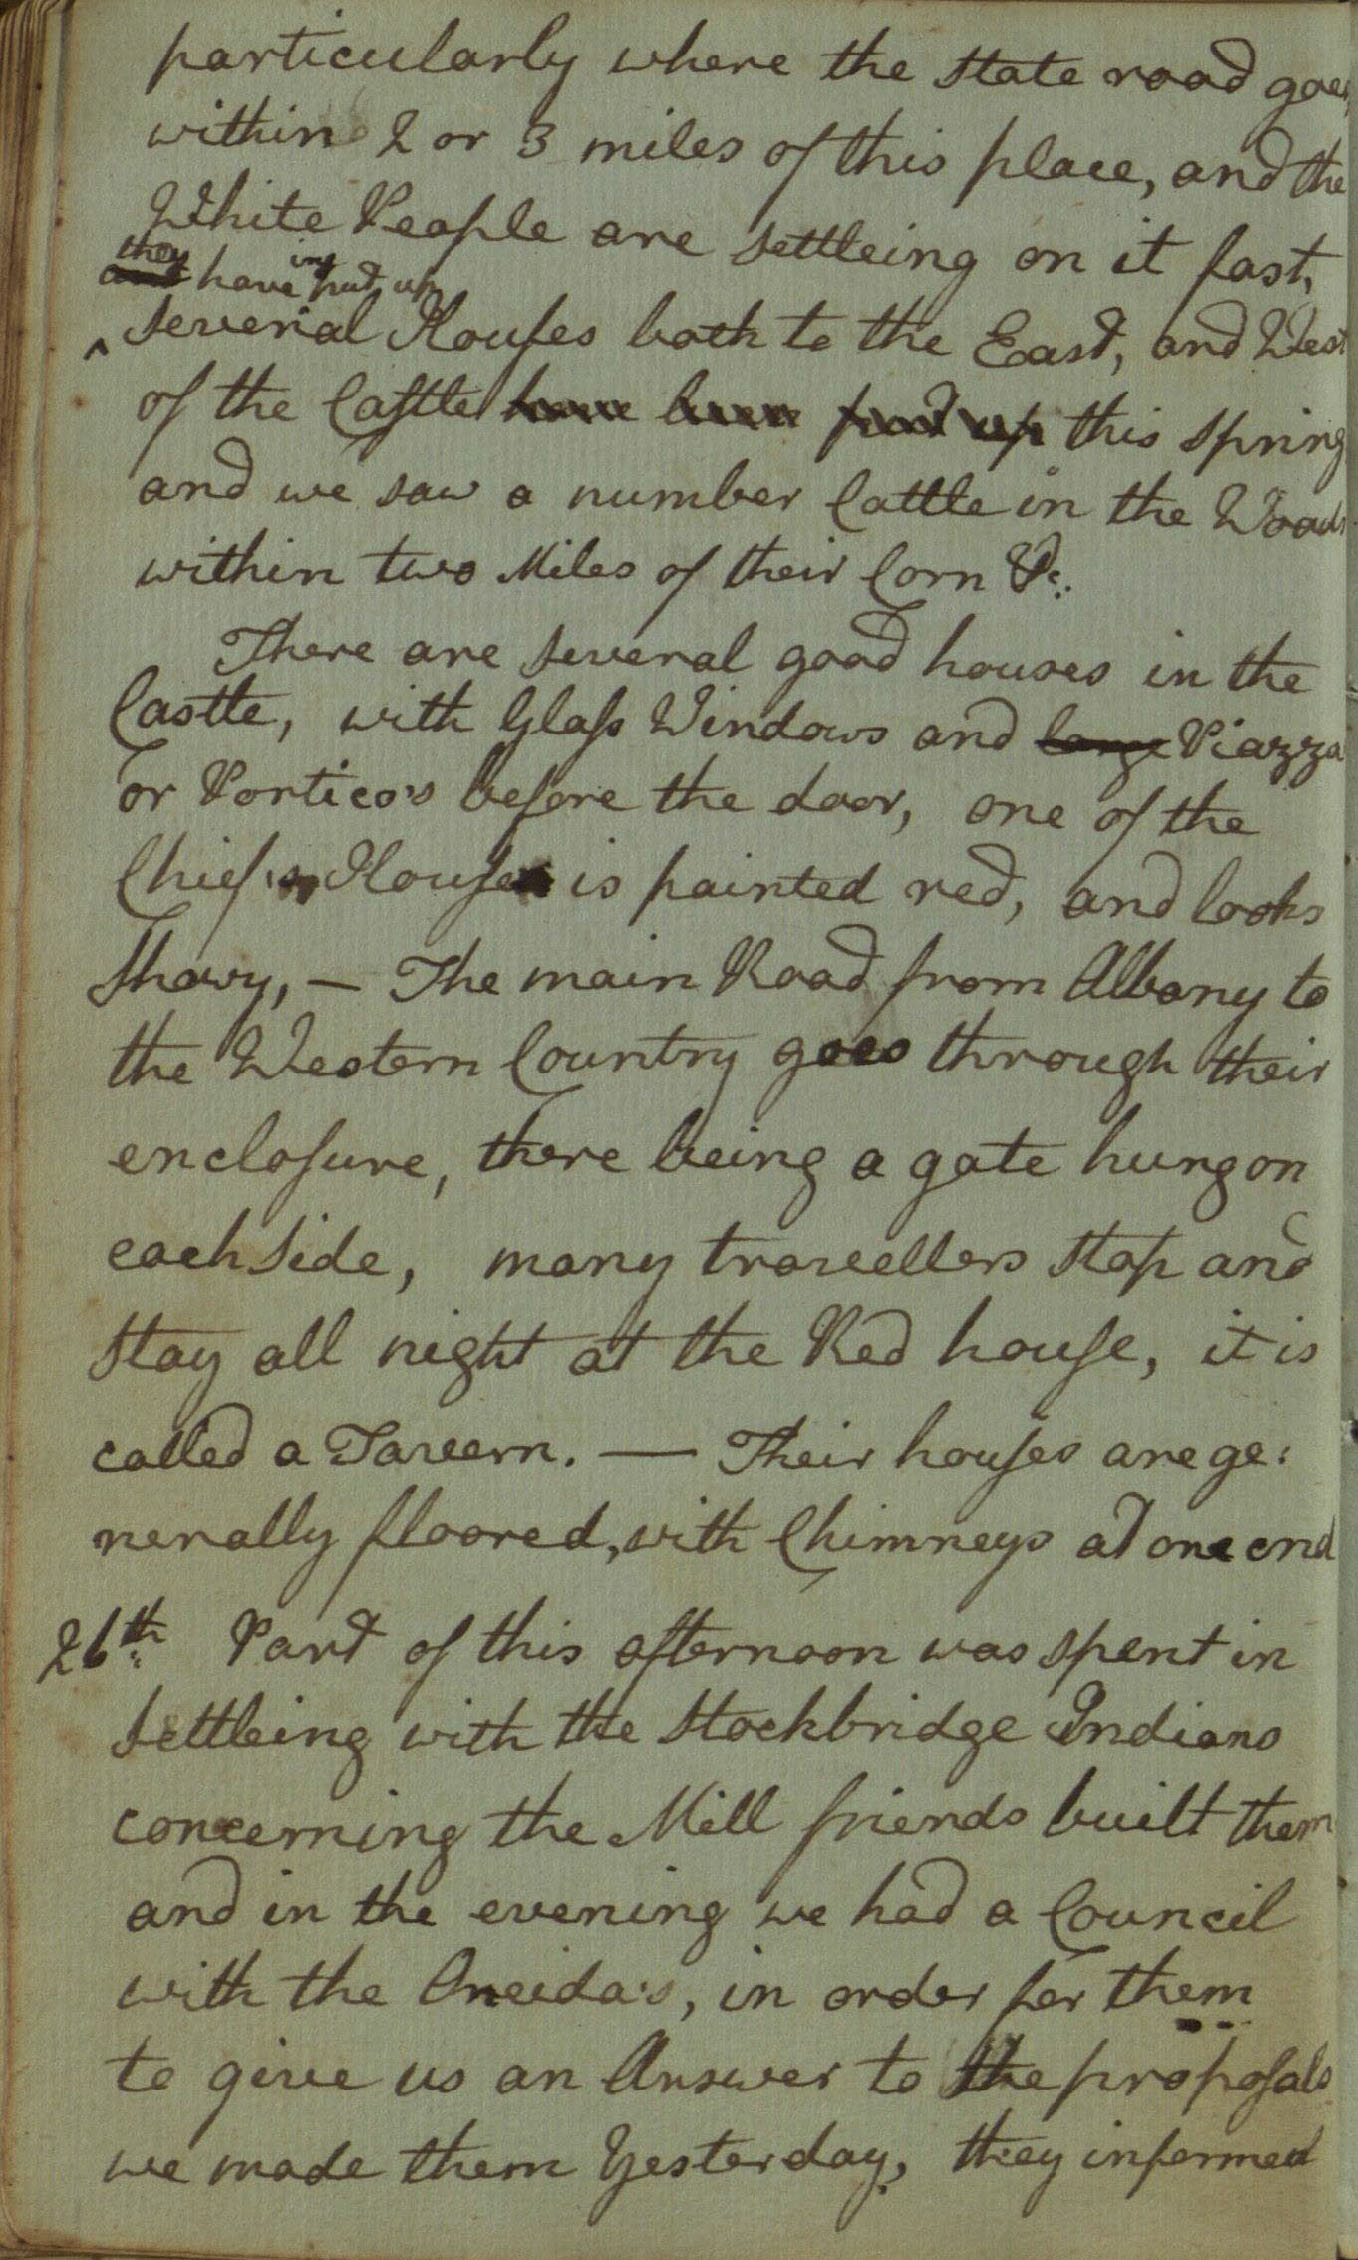 particularly where the State road goes
within 2 or 3 miles of this place, and the
White People are settleing on it fast,
they have ing put up
several Houses both to the East, and West
of the Castle have been put up this spring
and we saw a number Cattle in the Woods
within two Miles of their Corn &c.
There are several good houses in the
Castle, with Glass Windows and large Piazza
or Portico's before the door, one of the
Chief's House is painted red, and looks
Showy, — The main Road from Albany to
the Western Country goes through their
enclosure, there being a gate hung on
each side, many travellers stop and
stay all night at the Red house, it is
called a Tavern. — Their houses are ge:
nerally floored, with Chimneys at one end
26th. Part of this afternoon was spent in
settleing with the Stockbridge Indians
concerning the Mill friends built them
and in the evening we had a Council
with the Oneida's, in order for them
to give us an Answer to the proposals
we made them Yesterday, they informed